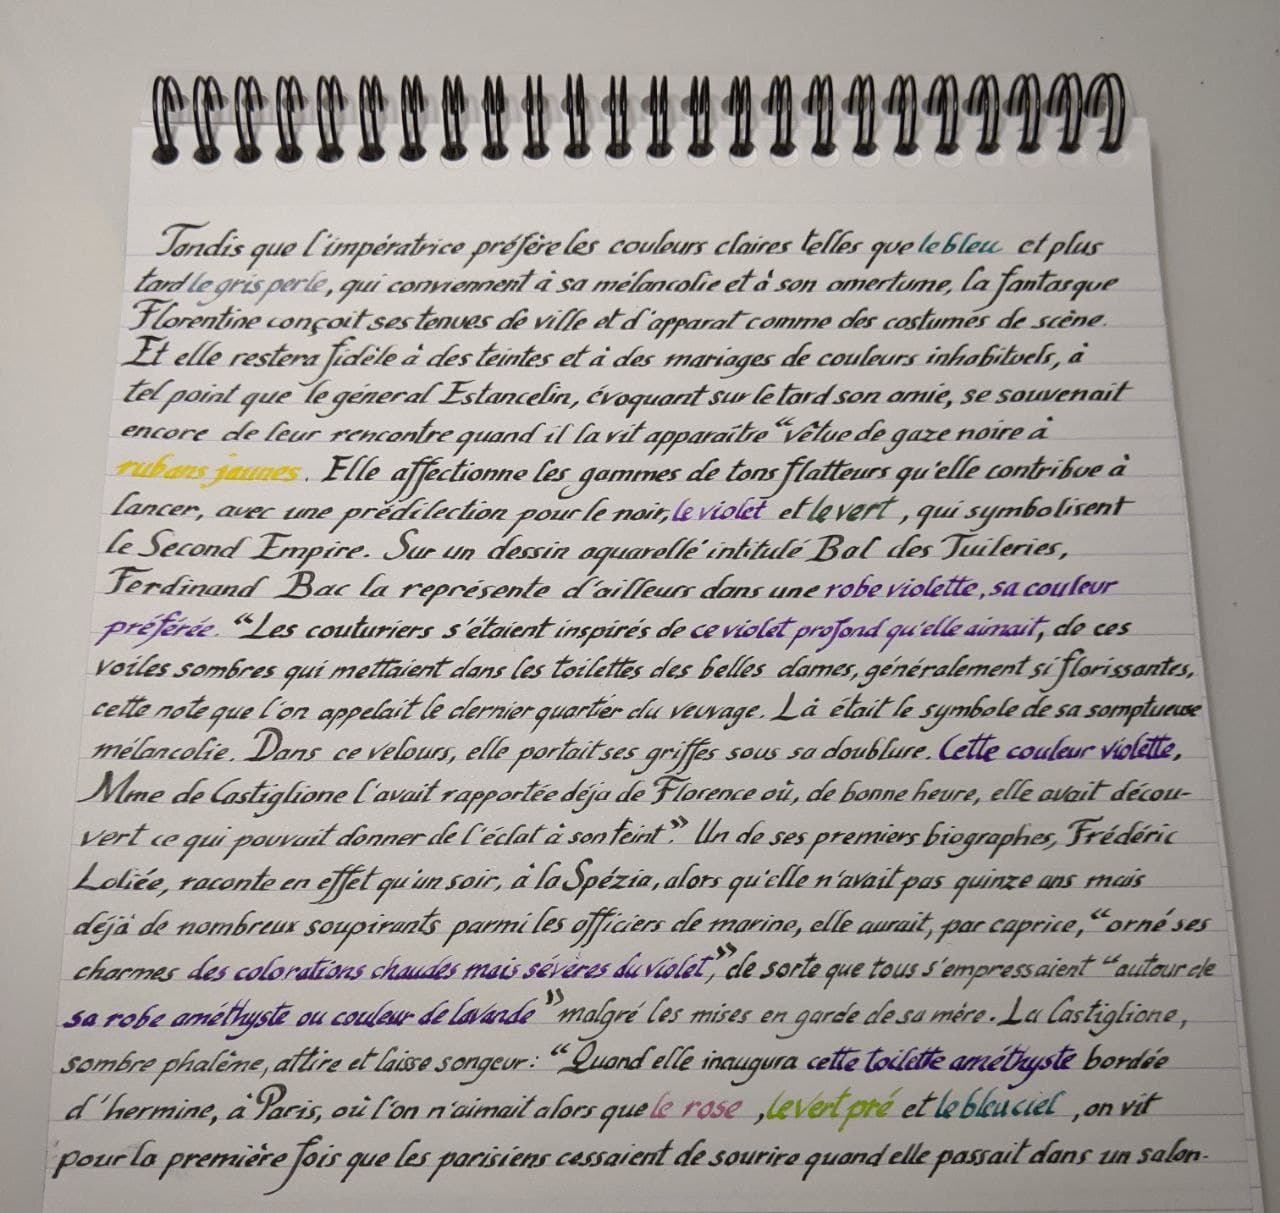 Tandis que l'impératrice préfère les couleurs claires telles que le bleu et plus
tard le gris perle, qui conviennent à sa mélancolie et à son amertume, la fantasque
Florentine conçoit ses tenues de ville et d'apparat comme des costumes de scène.
Et elle restera fidèle à des teintes et à des mariages de couleurs inhabituels, à
tel point que le géneral Estancelin, évoquant sur le tard son amie, se souvenait
encore de leur rencontre quand il la vit apparaître "vêtue de gaze noire à
rubans jaunes. Elle affectionne les gammes de tons flatteurs qu'elle contribue à
lancer, avec une prédilection pour le noir, le violet et le vert, qui symbolisent
le Second Empire. Sur un dessin aquarellé intitulé Bal des Tuileries,
Ferdinand Bac la représente d'ailleurs dans une robe violette, sa couleur
préférée. "Les couturiers s'étaient inspirés de ce violet profond qu'elle aimait, de ces
voiles sombres qui mettaient dans les toilettes des belles dames, généralement si florissantes,
cette note que l'on appelait le dernier quartier du veuvage. Là était le symbole de sa somptueuse
mélancolie. Dans ce velours, elle portait ses griffes sous sa doublure. Cette couleur violette,
Mme de Castiglione l'avait rapportée déja de Florence où, de bonne heure, elle avait décou-
vert ce qui pouvait donner de l'éclat à son teint". Un de ses premiers biographes, Frédéric
Loliée, raconte en effet qu'un soir, à la Spézia, alors qu'elle n'avait pas quinze ans mais
déjà de nombreux soupirants parmi les officiers de marine, elle aurait, par caprice, "orné ses
charmes des colorations chaudes mais sévères du violet", de sorte que tous s'empressaient "autour de
sa robe améthyste ou couleur de lavande" malgré les mises en garde de sa mère. La Castiglione,
sombre phalène, attire et laisse songeur: "Quand elle inaugura cette toilette améthyste bordée
d'hermine, à Paris, où l'on n'aimait alors que le rose, le vert pré et le bleu ciel, on vit
pour la première fois que les parisiens cessaient de sourire quand elle passait dans un salon.